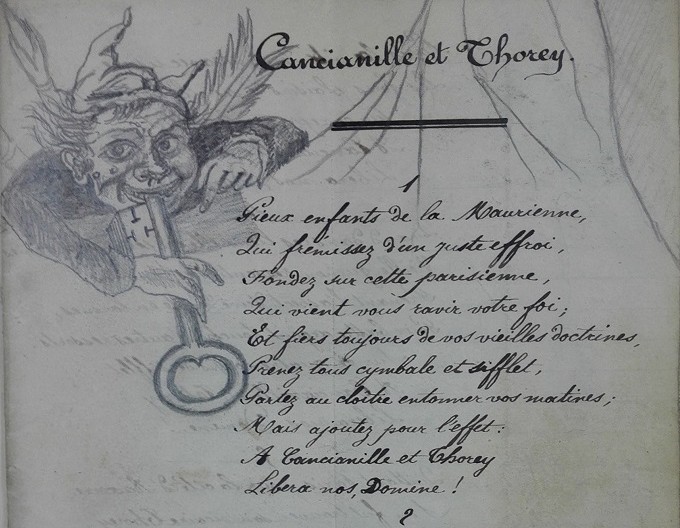 Cancianille et Thorey.
1
Pieux enfants de la Maurienne,
Qui frémissez d'un juste effroi,
Fondez sur cette parisienne,
Qui vient vous ravir votre foi;
Et fiers toujours de vos vieilles doctrines,
Prenez tous cymbale et sifflet,
Partez au cloître entonner vos matines;
Mais ajoutez pour l'effet:
A Cancianille et Thorey
Libera nos, Domine!
2